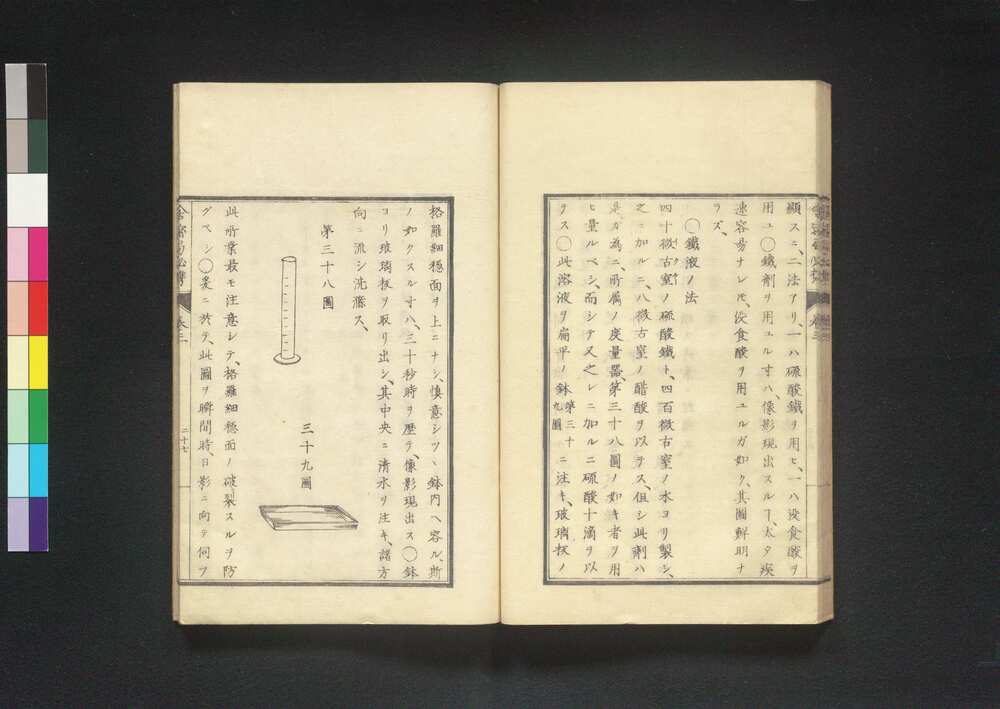 顯スニ、二法アリ、一ハ硫酸鐵ヲ用ヒ、一ハ沒食酸ヲ
用ユ◯鐵劑ヲ用ユル寸ハ、像影現出スルヿ、太タ疾
速容易ナレ𪜈、沒食酸ヲ用ユルガ如ク、其圖鮮明ナ
ラズ、
◯鐵液ノ法
四十微古窒ノ硫酸鐵ト、四百微古窒ノ水ヨリ製シ、
之ニ加ルニ、八微古窒ノ醋酸ヲ以テス、但シ此劑ハ
是ガ為ニ、所屬ノ度量器、第三十八圖ノ如キ者ヲ用
ヒ量ルベシ、而シテ又之レニ加ルニ硫酸十滴ヲ以
テス◯此溶液ヲ扁平ノ鉢第三十九圖ニ注キ、玻璃板ノ
格羅細穏面ヲ上ニナシ、慎意シツヽ鉢内ヘ容ル、斯
ノ如クスル寸ハ、三十秒時ヲ歴テ、像影現出ス◯鉢
ヨリ玻璃板ヲ取リ出シ、其中央ニ清水ヲ注キ、諸方
向ニ流シ洗滌ス、
第三十八圖
三十九圖
此所業最モ注意シテ、格羅細穏面ノ破裂スルヲ防
グベシ◯爰ニ於テ、此圖ヲ瞬間時、日影ニ向テ伺フ
卷三
二十七